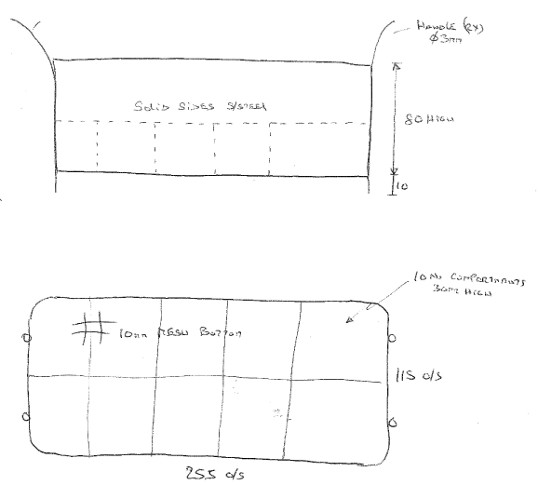 HANDLE (2X)
Ø3mm
SOLID SIDES S/STEEL
80 HIGH
10
10 No COMPARTMENTS
30mm HIGH
10mm MESH BOTTOM
115 o/s
255 o/s